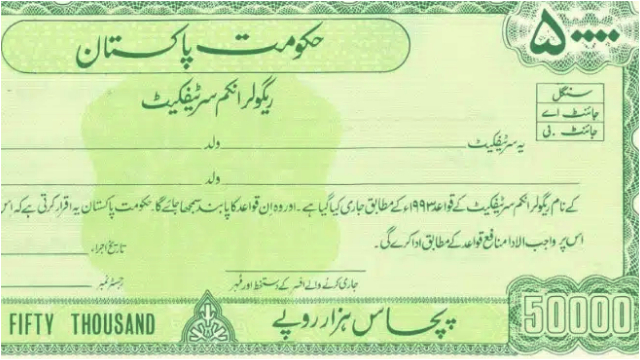 ۵۰۰۰۰
حکومت پاکستان
ریگولر انکم سرٹیفکیٹ
سنگل
جائنٹ اے
جائنٹ بی
یہ سرٹیفکیٹ ولد
ولد
کے نام ریگولر انکم سرٹیفکیٹ کے قواعد ۱۹۹۳ء کے مطابق جاری کیا گیا ہے۔ اور وہ ان قواعد کا پابند سمجھا جائے گا۔ حکومت پاکستان یہ اقرار کرتی ہے کہ اس
اس پر واجب الادا منافع قواعد کے مطابق ادا کرے گی۔
تاریخ اجراء
جاری کرنے والے افسر کے دستخط اور مہر
رجسٹر نمبر
FIFTY THOUSAND
پچاس ہزار روپے
50000